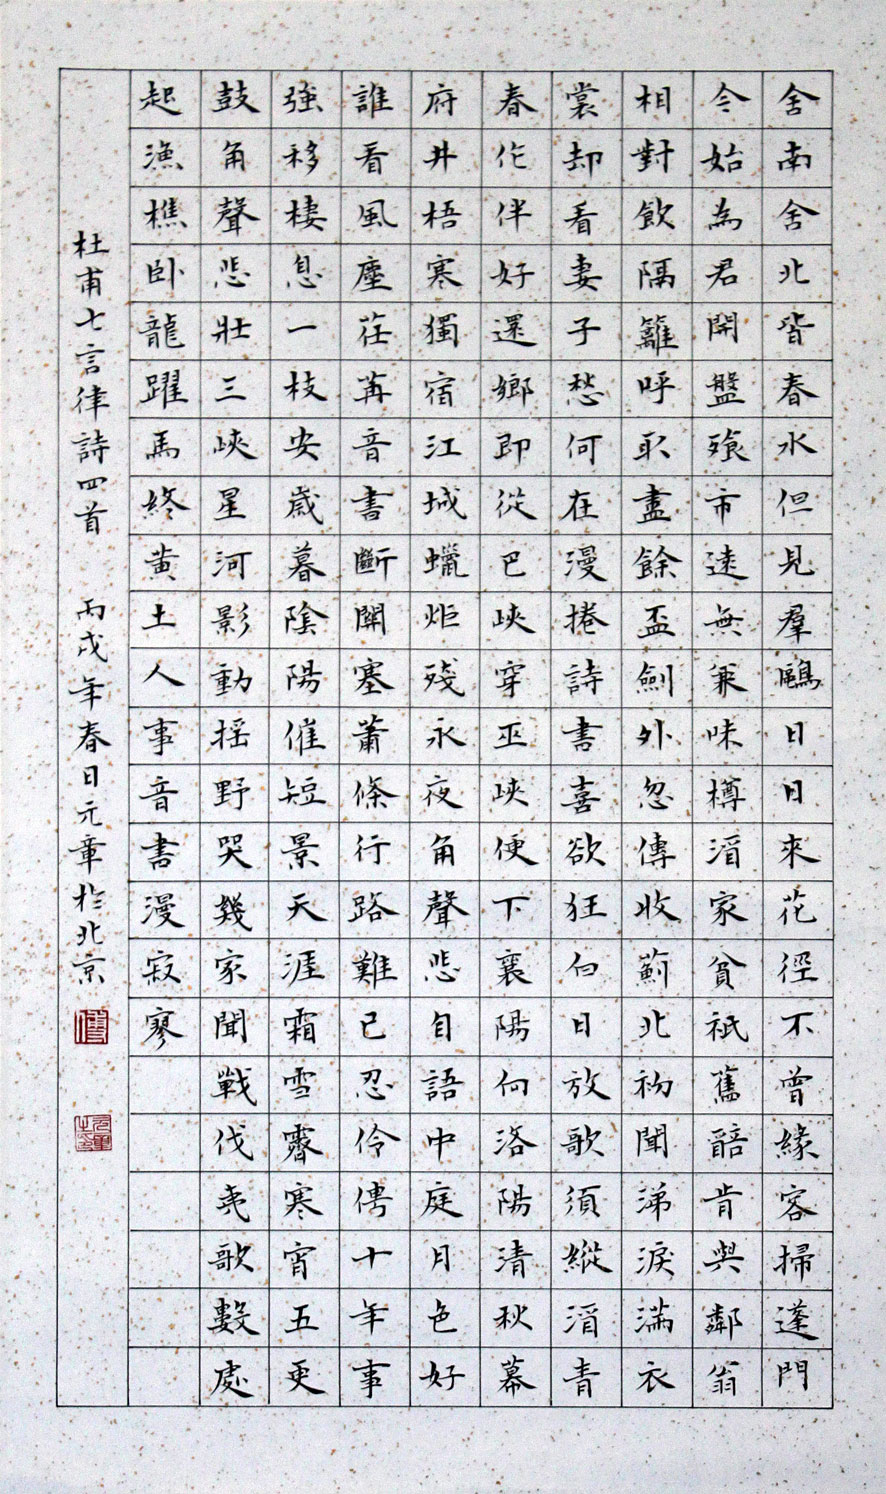 舍南舍北皆春水但見羣鷗日日來花徑不曾緣客掃蓬門
今始為君開盤飱市遠無兼味樽酒家貧祇舊醅肯與鄰翁
相對飲隔籬呼取盡餘盃劍外忽傳收薊北初聞涕淚滿衣
裳却看妻子愁何在漫捲詩書喜欲狂白日放歌須縱酒青
春作伴好還鄉即從巴峽穿巫峽便下襄陽向洛陽清秋幕
府井梧寒獨宿江城蠟炬殘永夜角聲悲自語中庭月色好
誰看風塵荏苒音書斷關塞蕭條行路難已忍伶俜十年事
強移棲息一枝安歲暮陰陽催短景天涯霜雪霽寒宵五更
鼓角聲悲壯三峽星河影動搖野哭幾家聞戰伐夷歌數處
起漁樵臥龍躍馬終黃土人事音書漫寂寥
杜甫七言律詩四首 丙戌年春日元章於北京